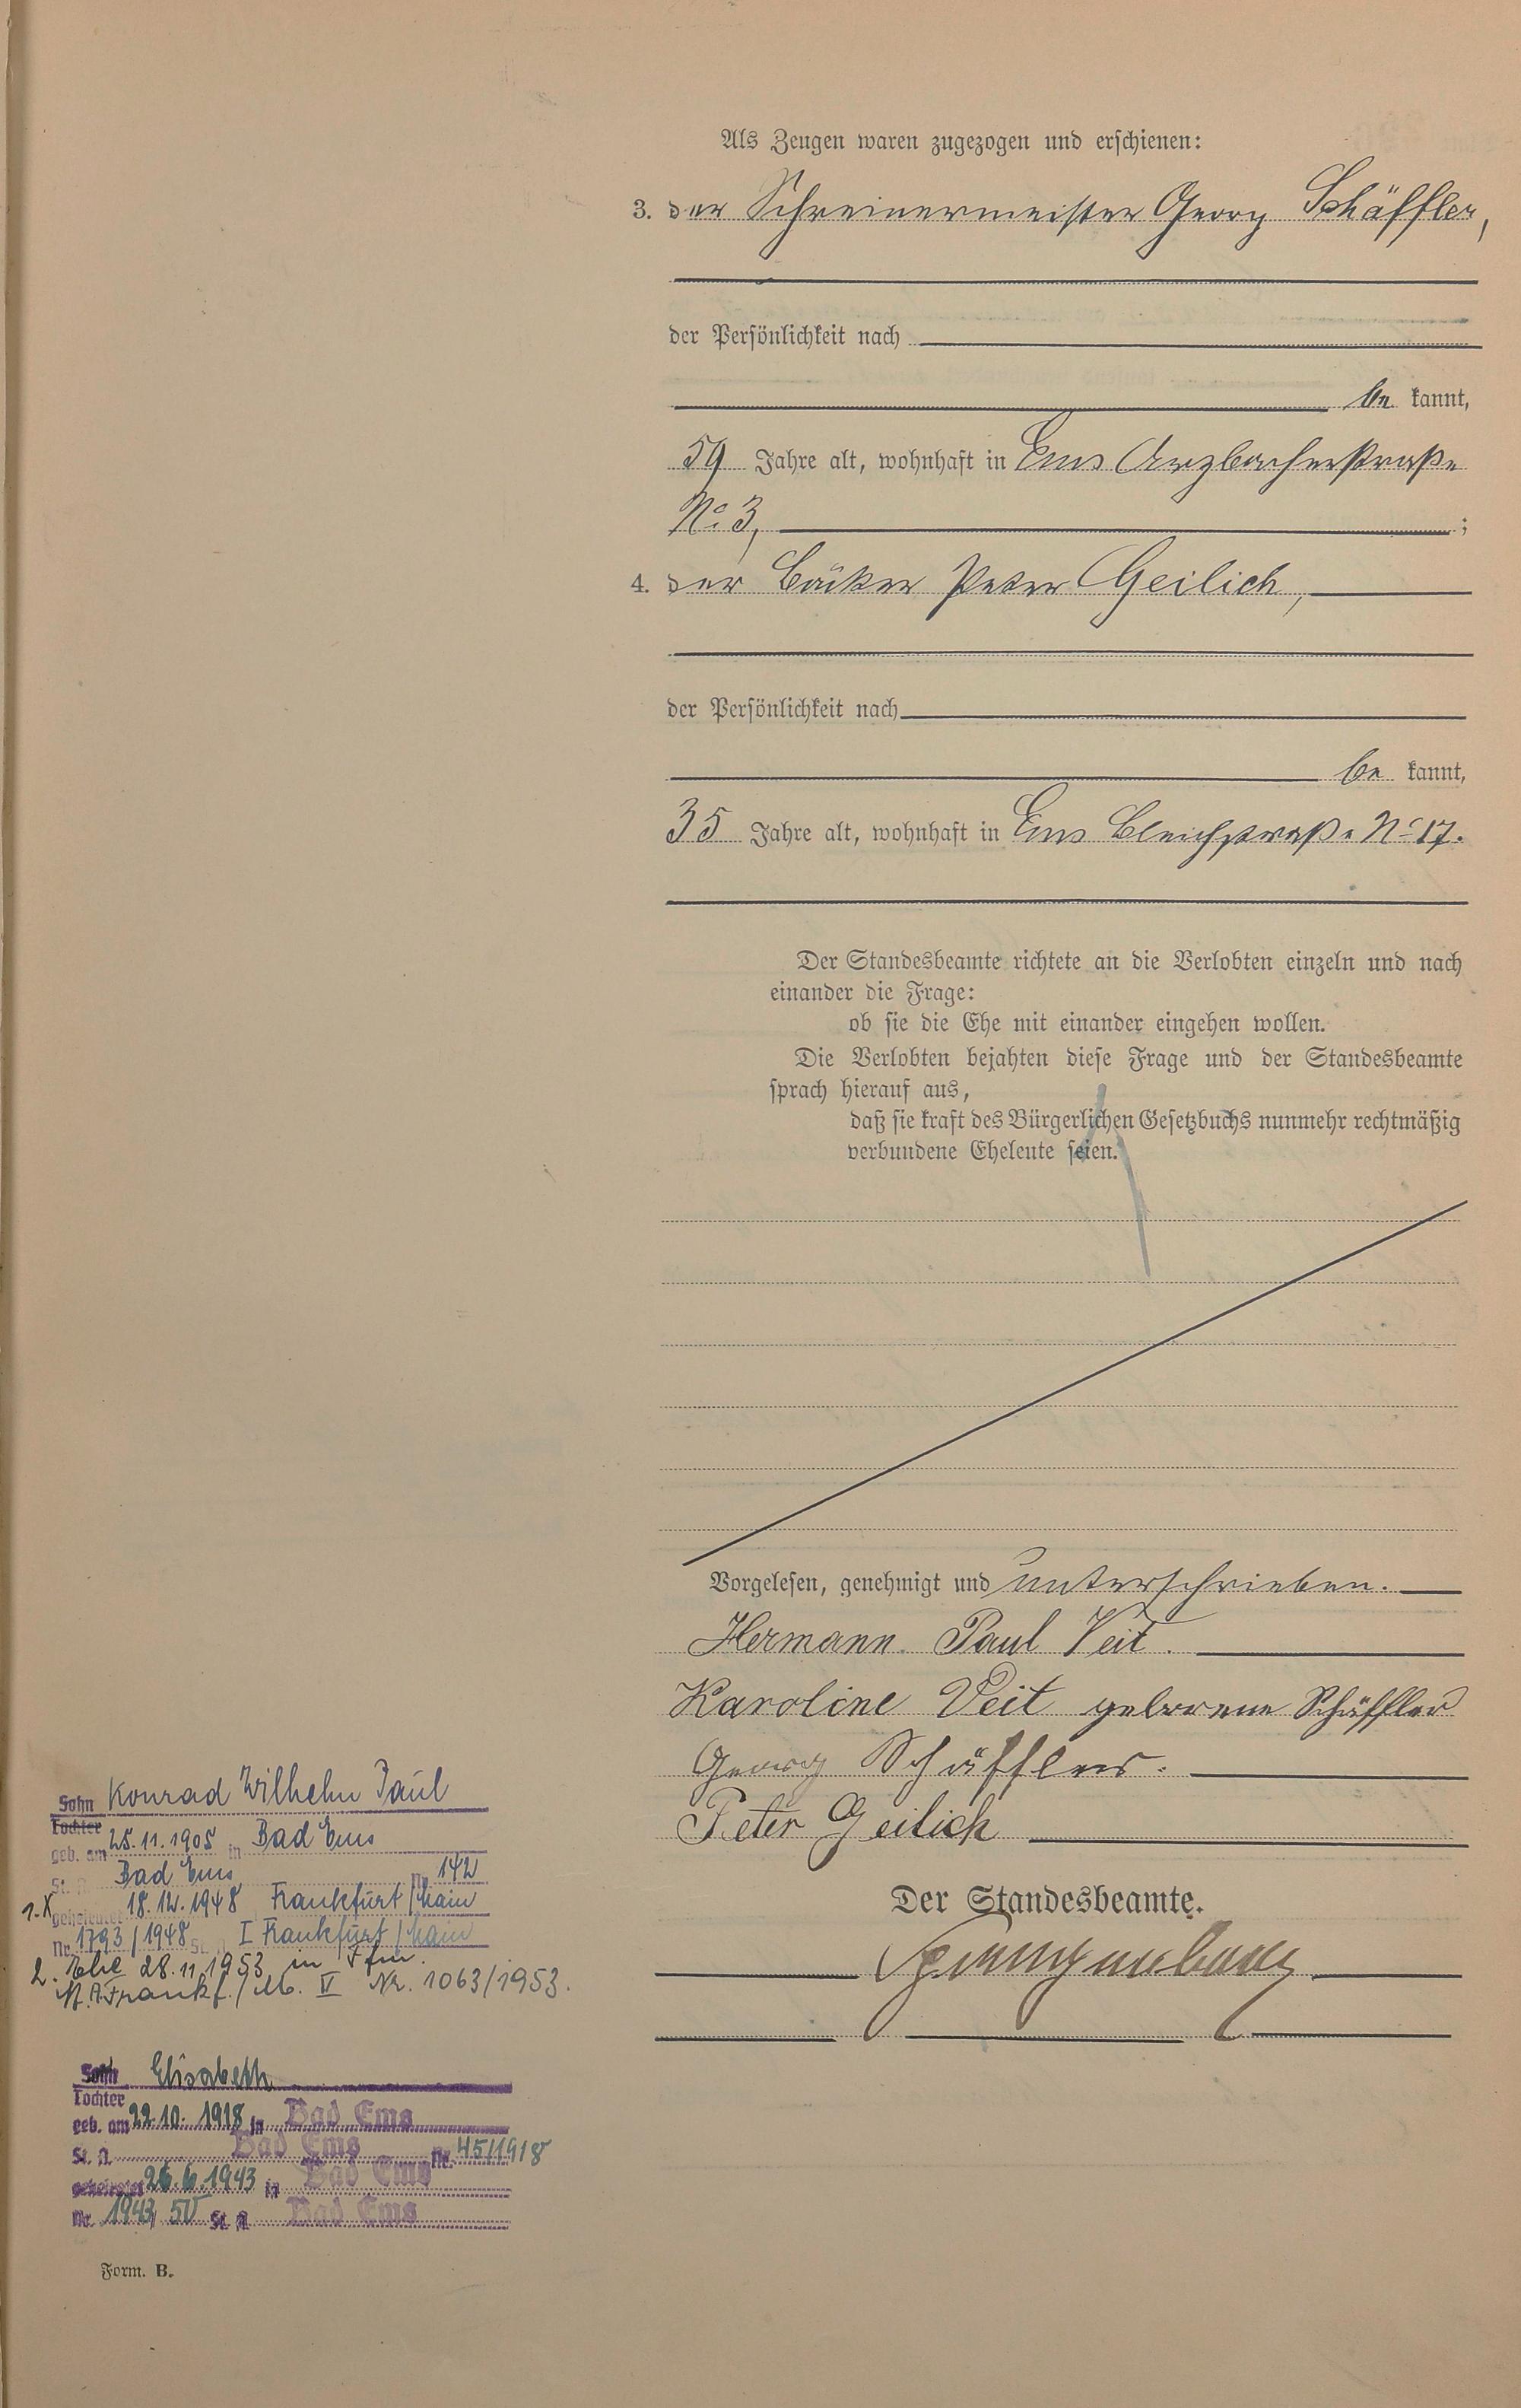 Als Zeugen waren zugezogen und erschienen:
3. der Schreinermeister Georg Schäffler,
der Persönlichkeit nach
be kannt,
59 Jahre alt, wohnhaft in Ems Arzbacherstraße
No. 3, ;
4. der Bäcker Peter Geilich,
der Persönlichkeit nach
be kannt,
35 Jahre alt, wohnhaft in Ems Bleichstraße No 17.
Der Standesbeamte richtete an die Verlobten einzeln und nach
einander die Frage:
ob sie die Ehe mit einander eingehen wollen.
Die Verlobten bejahten diese Frage und der Standesbeamte
sprach hierauf aus,
daß sie kraft des Bürgerlichen Gesetzbuchs nunmehr rechtmäßig
verbundene Eheleute seien.
Vorgelesen, genehmigt und unterschrieben.
Hermann Paul Veit.
Karoline Veit geborene Schäffler
Georg Schäffler.
Peter Geilich
Der Standesbeamte.
Sohn Konrad Wilhelm Paul
Tochter
geb. am 25.11.1905 in Bad Ems
St. A. Bad Ems Nr. 142
1. X geheiratet 18.12.1948 Frankfurt/Main
Nr. 1793/1948 St. A. I Frankfurt/Main
2. Ehe 28.11.1953 in Ffm.
St. A. Frankf./M. V Nr. 1063/1953.
Sohn Elisabeth
Tochter
geb. am 22.10.1918 in Bad Ems
St. A. Bad Ems Nr. 45/1918
geheiratet 26.6.1943 in Bad Ems
Nr. 1943, 50 St. A. Bad Ems
Form. B.